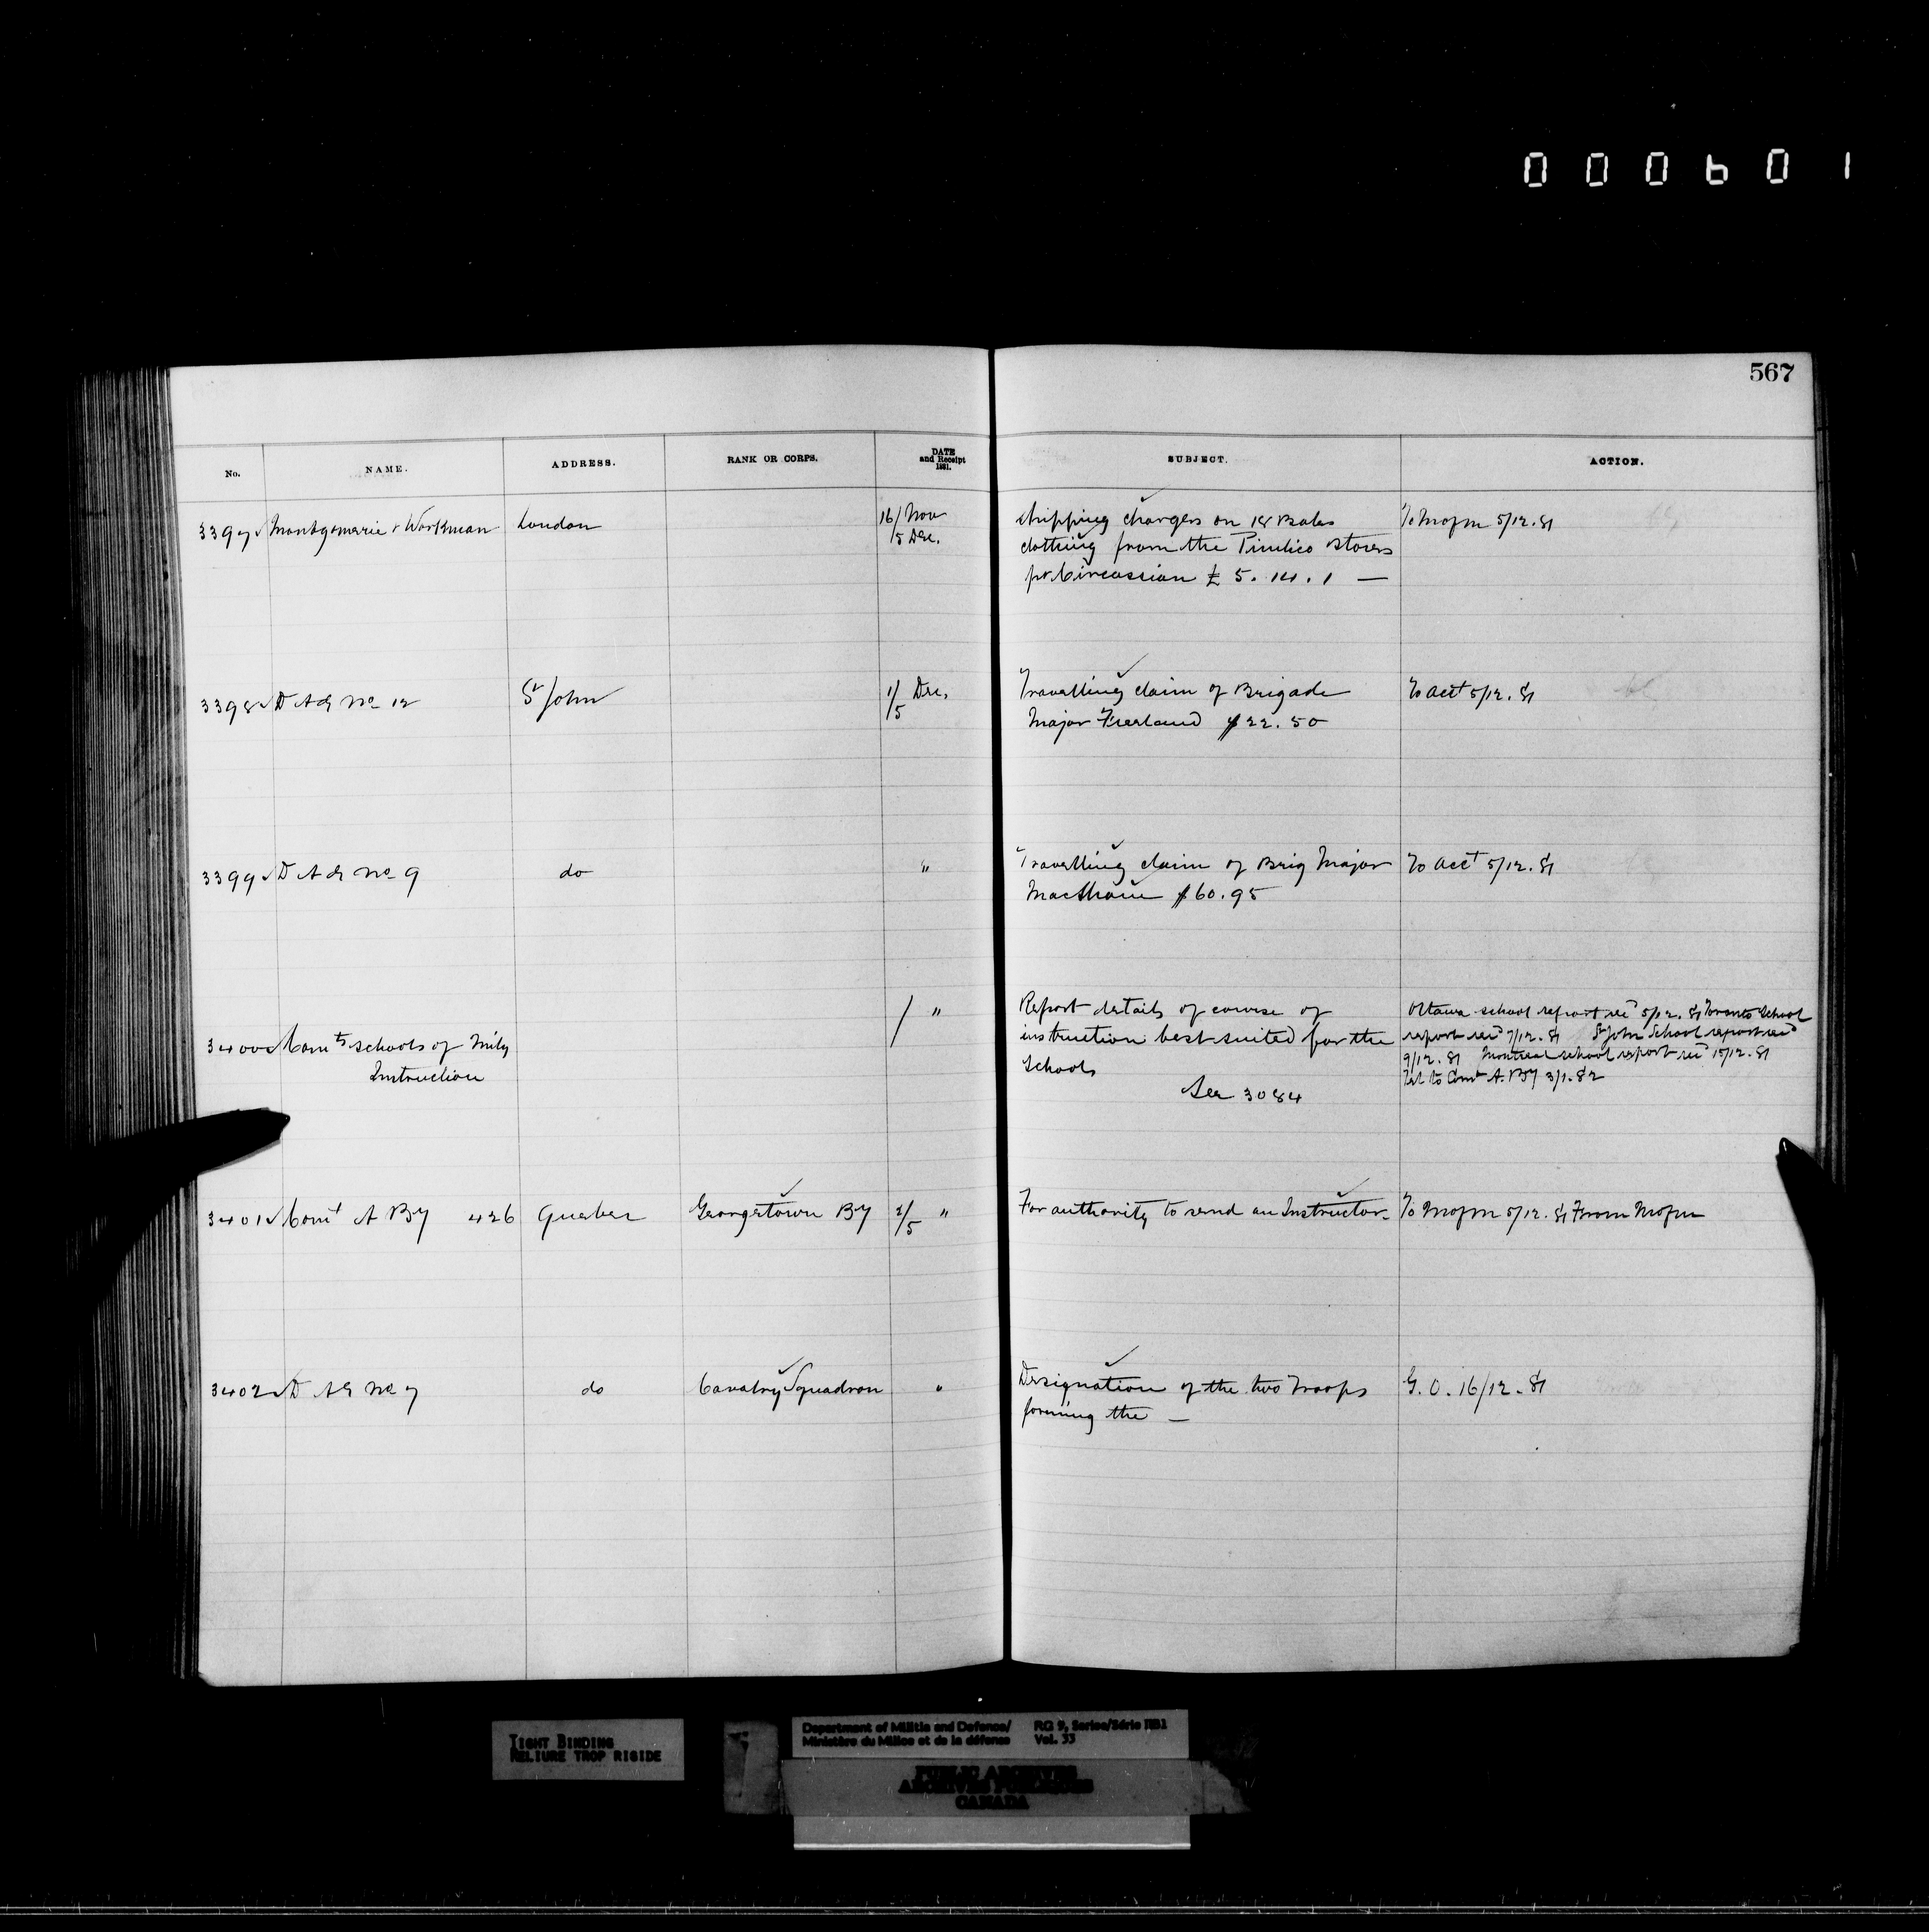 000601
567
No. NAME. ADDRESS. RANK OR CORPS. DATE and Receipt 1881. SUBJECT. ACTION.
3397 Montgomerie & Workman London 16/ Nov Shipping charges on 18 Bales To Mofm 5/12.81
/5 Dec. clothing from the Pimlico Stores
pr Circassian £ 5.14.1 —
3398 D A G No 12 St John 1/ Dec. Travelling claim of Brigade To Acct 5/12.81
/5 Major $22.50
3399 D A G No 9 do " Travelling claim of Brig Major To Acct 5/12.81
MacShane $60.95
3400 Comts Schools of Mily / " Report details of course of Ottawa school report recd 5/12.81 Toronto School
Instruction instruction best suited for the report recd 7/12.81 St John School report recd
Schools 9/12.81 Montreal school report recd 15/12.81
See 3084 Tel to Comt A. By 3/1.82
3401 Comt A By 426 Quebec Georgetown By 2/5 " For authority to send an Instructor - To Mofm 5/12.81 From Mofm
3402 D A G No 7 do Cavalry Squadron " Designation of the two Troops G.O. 16/12.81
forming the —
TIGHT BINDING
RELIURE TROP RIGIDE
Department of Militia and Defence/ RG 9, Series/Série IIB1
Ministère du Milice et de la défense Vol. 33
PUBLIC ARCHIVES
ARCHIVES PUBLIQUES
CANADA